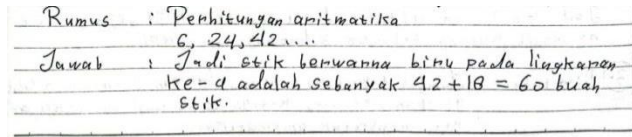 Rumus : Perhitungan aritmatika
6, 24, 42....
Jawab : Jadi stik berwarna biru pada lingkaran
ke-4 adalah sebanyak 42+18 = 60 buah
stik.